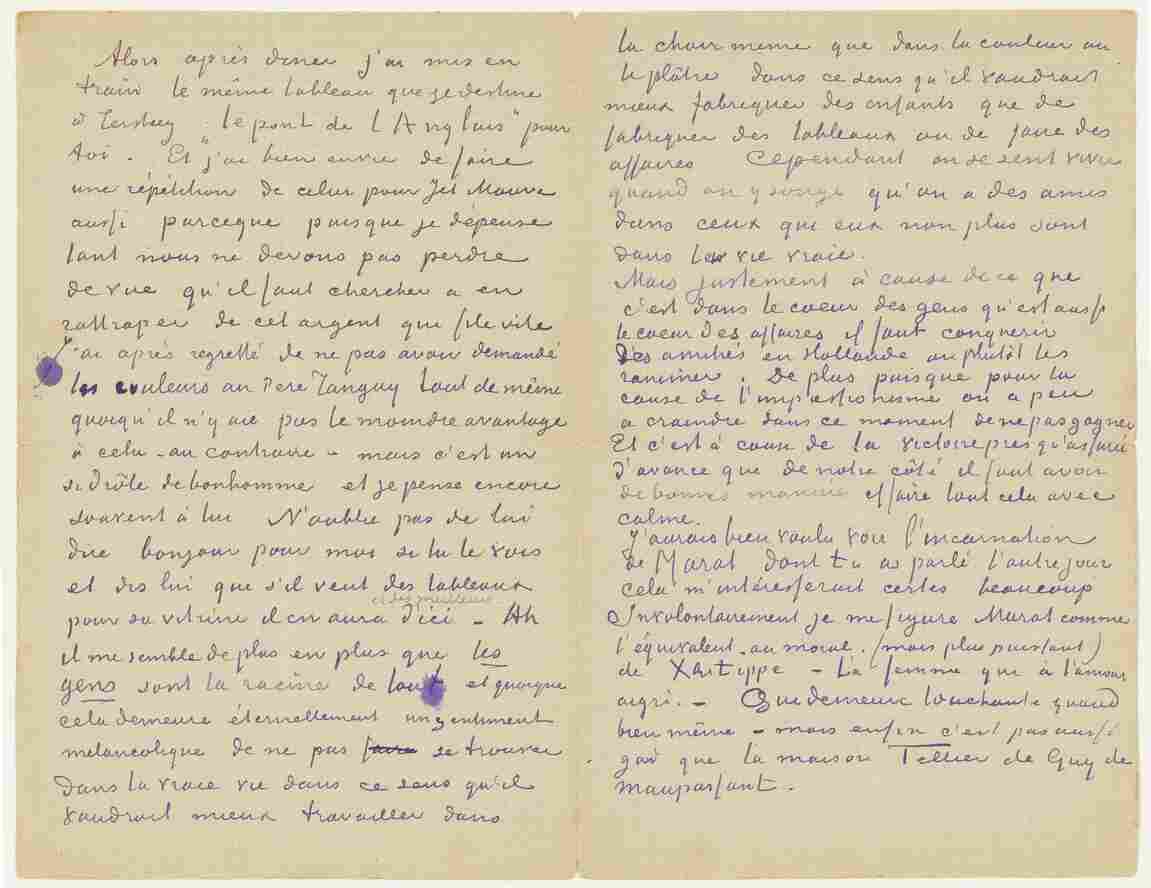 Alors après diner j'ai mis en
train le même tableau que je destine
à Tersteeg "le pont de l'Anglais" pour
toi. Et j'ai bien envie de faire
une répétition de celui pour Jet Mauve
aussi parceque puisque je dépense
tant nous ne devons pas perdre
de vue qu'il faut chercher a en
rattraper de cet argent que file vite
j'ai après regretté de ne pas avoir demandé
les couleurs au Pere Tanguy tout de même
quoiqu'il n'y aie pas le moindre avantage
à celà - au contraire - mais c'est un
si drôle de bonhomme et je pense encore
souvent à lui N'oublie pas de lui
dire bonjour pour moi si tu le vois
et dis lui que s'il veut des tableaux
pour sa vitrine il en aura d'ici et des meilleurs - Ah
il me semble de plus en plus que les
gens sont la racine de tout et quoique
cela demeure éternellement un sentiment
melancolique de ne pas faire se trouver
dans la vraie vie dans ce sens qu'il
vaudrait mieux travailler dans
la chair meme que dans la couleur ou
le plâtre dans ce sens qu'il vaudrait
mieux fabriquer des enfants que de
fabriquer des tableaux ou de faire des
affaires Cependant on se sent vivre
quand on y songe qu'on a des amis
dans ceux que eux non plus sont
dans la vie vraie.
Mais justement à cause de ce que
c'est dans le coeur des gens qu'est aussi
le coeur des affaires il faut conquerir
des amitiés en Hollande ou plutôt les
ranimer. De plus puisque pour la
cause de l'impressionisme on a peu
a craindre dans ce moment de ne pas gagner
Et c'est à cause de la victoire presqu'assurée
d'avance que de notre côté il faut avoir
de bonnes manières et faire tout cela avec
calme.
J'aurais bien voulu voir l'incarnation
de Marat dont tu as parlé l'autre jour
cela m'intéresserait certes beaucoup
Involontairement je me figure Marat comme
l'équivalent - au moral - (mais plus puissant)
de Xantippe - La femme que à l'amour
aigri. - Que demeure touchante quand
bien même - mais enfin c'est pas aussi
gai que la maison Tellier de Guy de
maupassant.